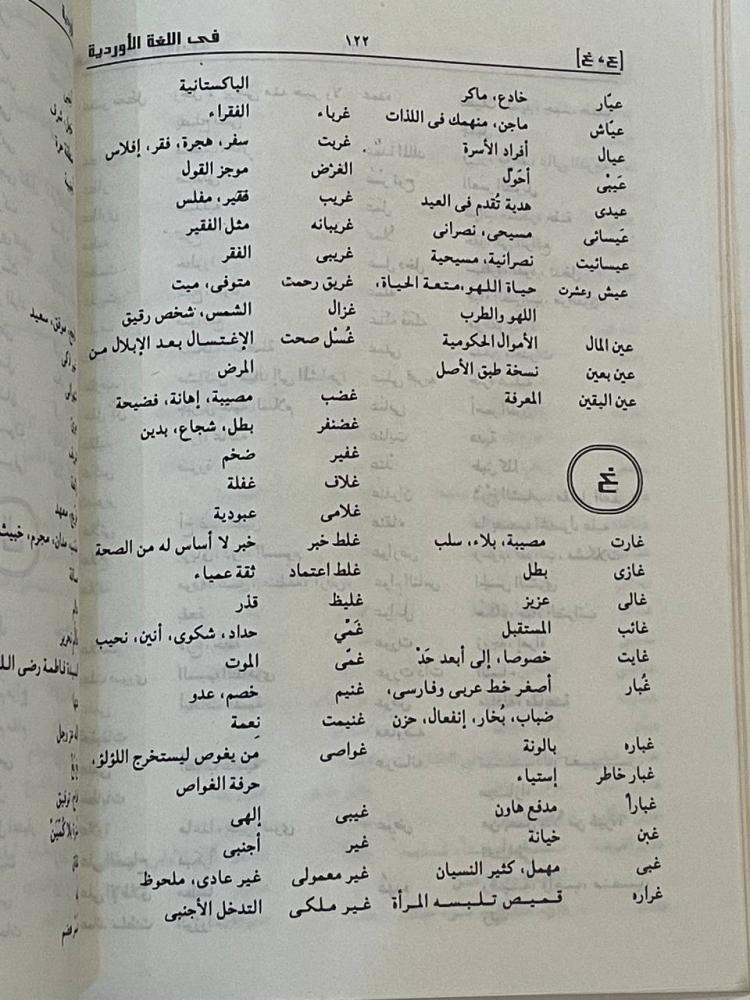 [ع، غ]
١٢٢
فى اللغة الأوردية
عيّار خادع، ماكر
عيّاش ماجن، منهمك فى اللذات
عيال أفراد الأسرة
عَيبْى أحَولّ
عيدى هدية تُقدم فى العيد
عَيسائى مسيحى، نصرانى
عيسائيت نصرانية، مسيحية
عيش وعشرت حياة اللهو، متعة الحياة،
اللهو والطرب
عين المال الأموال الحكومية
عين بعين نسخة طبق الأصل
عين اليقين المعرفة
غ
غارت مصيبة، بلاء، سلب
غازى بطل
غالى عزيز
غائب المستقبل
غايت خصوصا، إلى أبعد حَدْ
غُبار أصغر خط عربى وفارسى،
ضباب، بُخار، إنفعال، حزن
غباره بالونة
غبار خاطر إستياء
غباراً مدفع هاون
غبن خيانة
غبى مهمل، كثير النسيان
غراره قميص تلبسه المرأة
الباكستانية
غرباء الفقراء
غربت سفر، هجرة، فقر، إفلاس
الغرْض موجز القول
غريب فقير، مفلس
غريبانه مثل الفقير
غريبى الفقر
غريق رحمت متوفى، ميت
غزال الشمس، شخص رقيق
غُسْل صحت الإغتسال بعد الإبلال من
المرض
غضب مصيبة، إهانة، فضيحة
غضنفر بطل، شجاع، بدين
غفير ضخم
غلاف غفلة
غلامى عبودية
غلط خبر خبر لا أساس له من الصحة
غلط اعتماد ثقة عمياء
غليظ قذر
غَمْي حداد، شكوى، أنين، نحيب
غمّى الموت
غنيم خصم، عدو
غنيمت نِعمة
غواصى مَن يغوص ليستخرج اللؤلؤ،
حرفة الغواص
غيبى إلهى
غير أجنبى
غير معمولى غير عادى، ملحوظ
غير ملكى التدخل الأجنبى